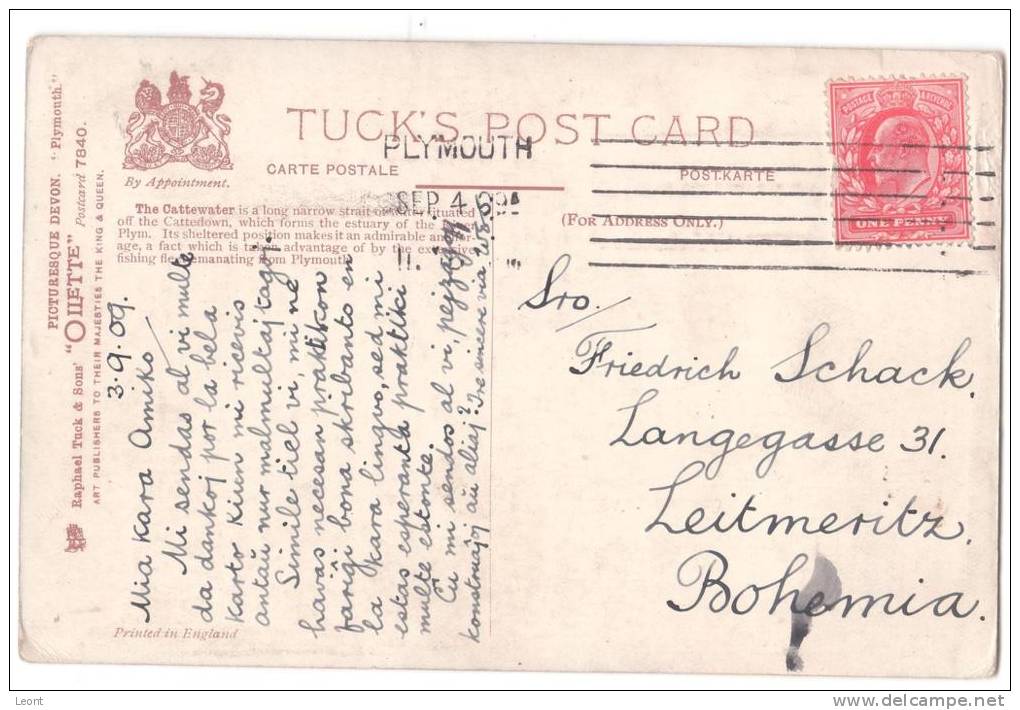 PICTURESQUE DEVON. "Plymouth."
Raphael Tuck & Sons' "OILETTE" Postcard 7840.
ART PUBLISHERS TO THEIR MAJESTIES THE KING & QUEEN.
By Appointment.
TUCK'S POST CARD
CARTE POSTALE
POSTKARTE
PLYMOUTH
SEP 4
POSTAGE & REVENUE
ONE PENNY
The Cattewater is a long narrow strait of water situated
off the Cattedown, which forms the estuary of the
Plym. Its sheltered position makes it an admirable anchor-
age, a fact which is taken advantage of by the extensive
fishing fleet emanating from Plymouth.
(FOR ADDRESS ONLY.)
3.9.09.
Mia Kara Amiko
Mi sendas al vi multe
da dankoj por la bela
karto kiun mi ricevis
antaŭ nur malmultaj tagoj.
Simile tiel vi, mi ne
havas necesan praktikon
fariĝi bona skribanto en
la Kara lingvo, sed mi
estas esperanta praktiki
multe estonte.
Ĉu mi sendos al vi, pejzaĝojn
konstruajoj aŭ aliaj? Tre sincere via
Sro/
Friedrich Schack.
Langegasse 31.
Leitmeritz.
Bohemia.
Printed in England
Leont
www.delcampe.net